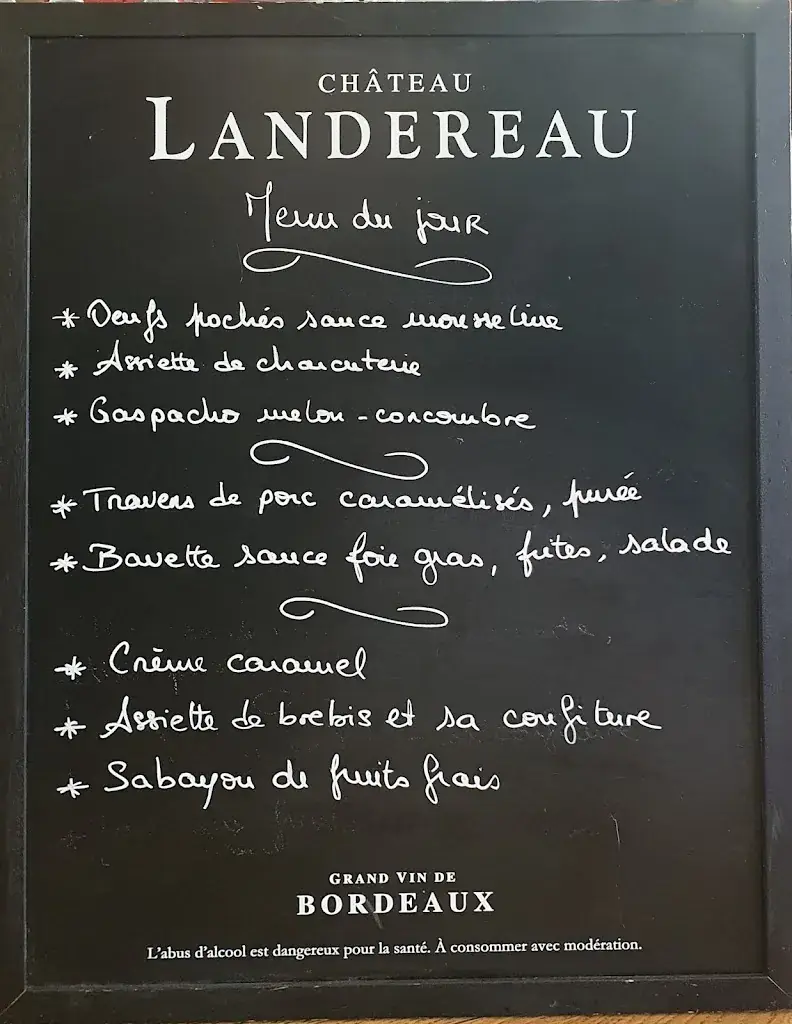 CHÂTEAU
LANDEREAU
Menu du jour
* Oeufs pochés sauce mousseline
* Assiette de charcuterie
* Gaspacho melon - concombre
* Travers de porc caramélisés, purée
* Bavette sauce foie gras, frites, salade
* Crème caramel
* Assiette de brebis et sa confiture
* Sabayon de fruits frais
GRAND VIN DE
BORDEAUX
L'abus d'alcool est dangereux pour la santé. À consommer avec modération.